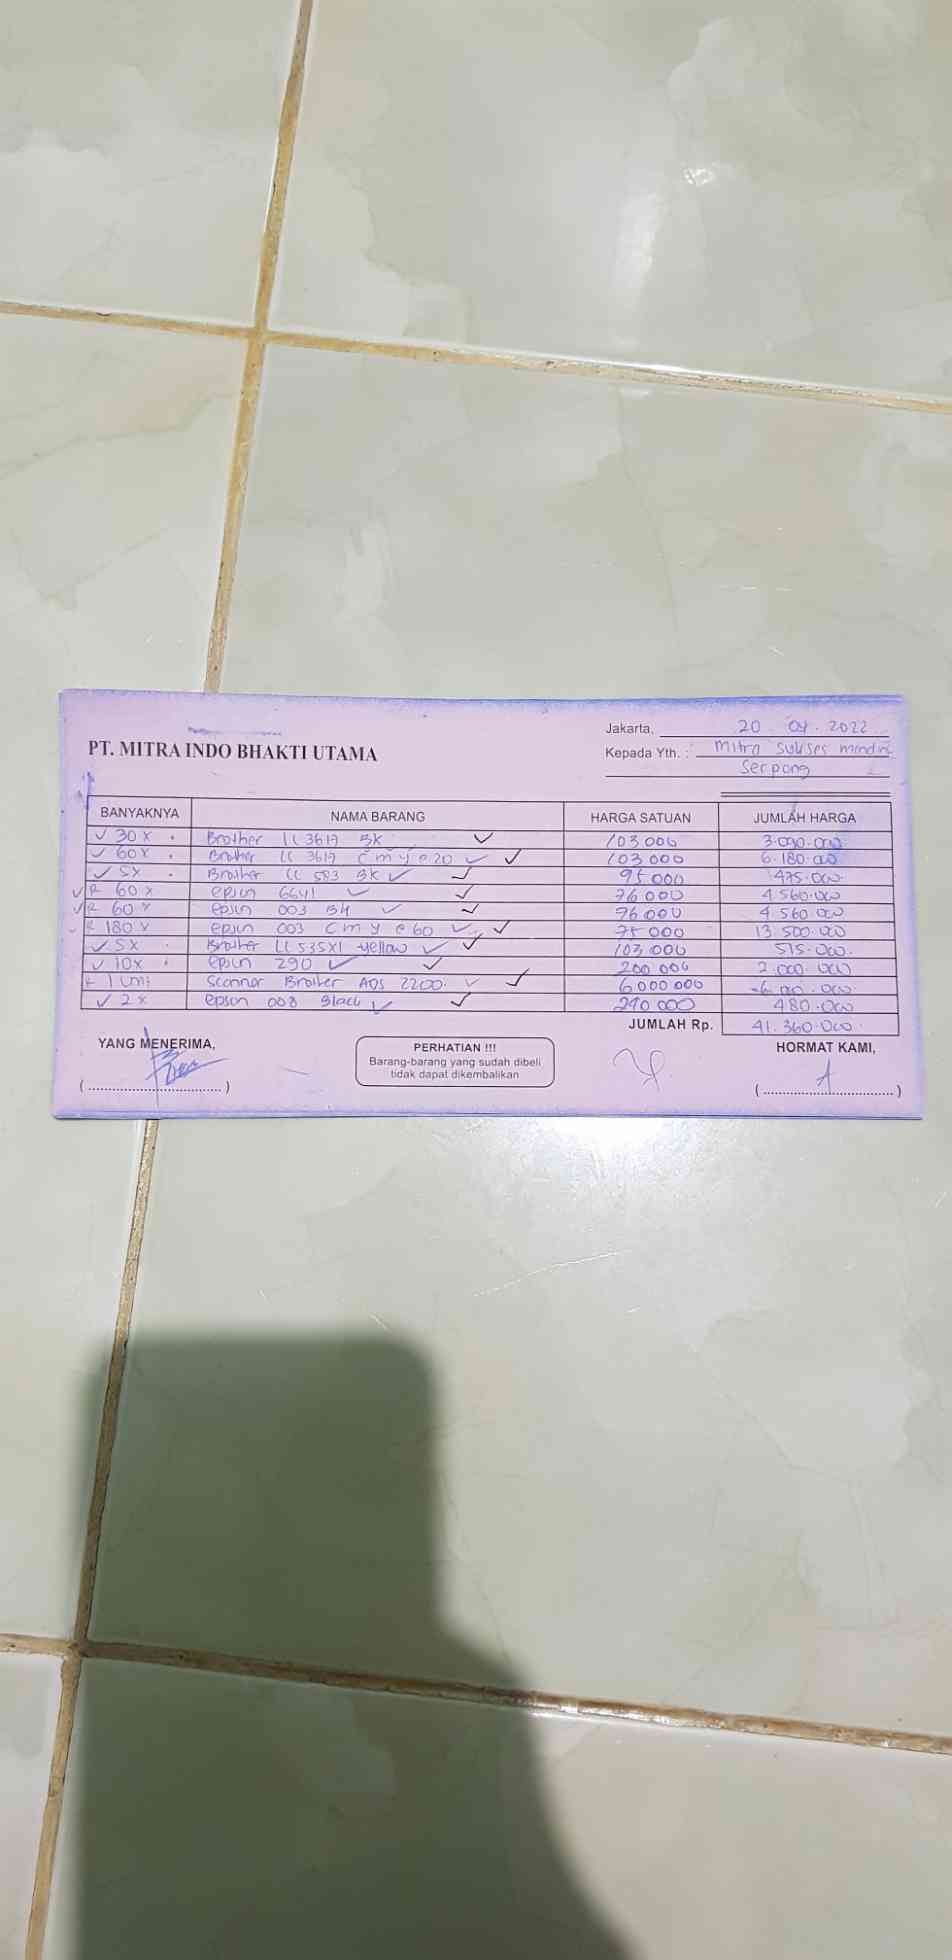 Jakarta, 20 . 04 . 2022
PT. MITRA INDO BHAKTI UTAMA
Kepada Yth. : Mitra Sukses mandiri
Serpong
BANYAKNYA NAMA BARANG HARGA SATUAN JUMLAH HARGA
30 x Brother LC 3617 BK 103.000 3.090.000
60 x Brother LC 3617 C m y @ 20 103 000 6.180.000
5x Brother LC 583 BK 95.000 475.000
R 60 x epson 6641 76 000 4 560.000
R 60 x epson 003 BK 76 000 4 560 000
R 180 x epson 003 C m y @ 60 75 000 13.500 000
5x Brother LC 535XL yellow 103 000 515.000
10x epson 290 200 000 2.000.000
1 unit Scanner Brother ADS 2200 6 000 000 6.000.000
2 x epson 008 Black 240 000 480.000
JUMLAH Rp. 41.360.000
YANG MENERIMA,
PERHATIAN !!!
Barang-barang yang sudah dibeli
tidak dapat dikembalikan
HORMAT KAMI,